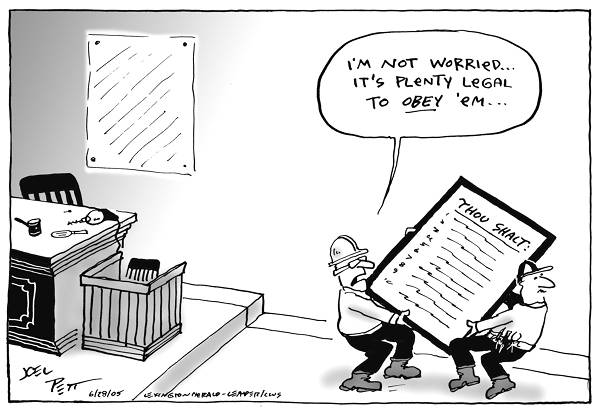 I'M NOT WORRIED...
IT'S PLENTY LEGAL
TO OBEY 'EM...
THOU SHALT:
JOEL
PETT
6/28/05 LEXINGTON HERALD-LEADER/CWS